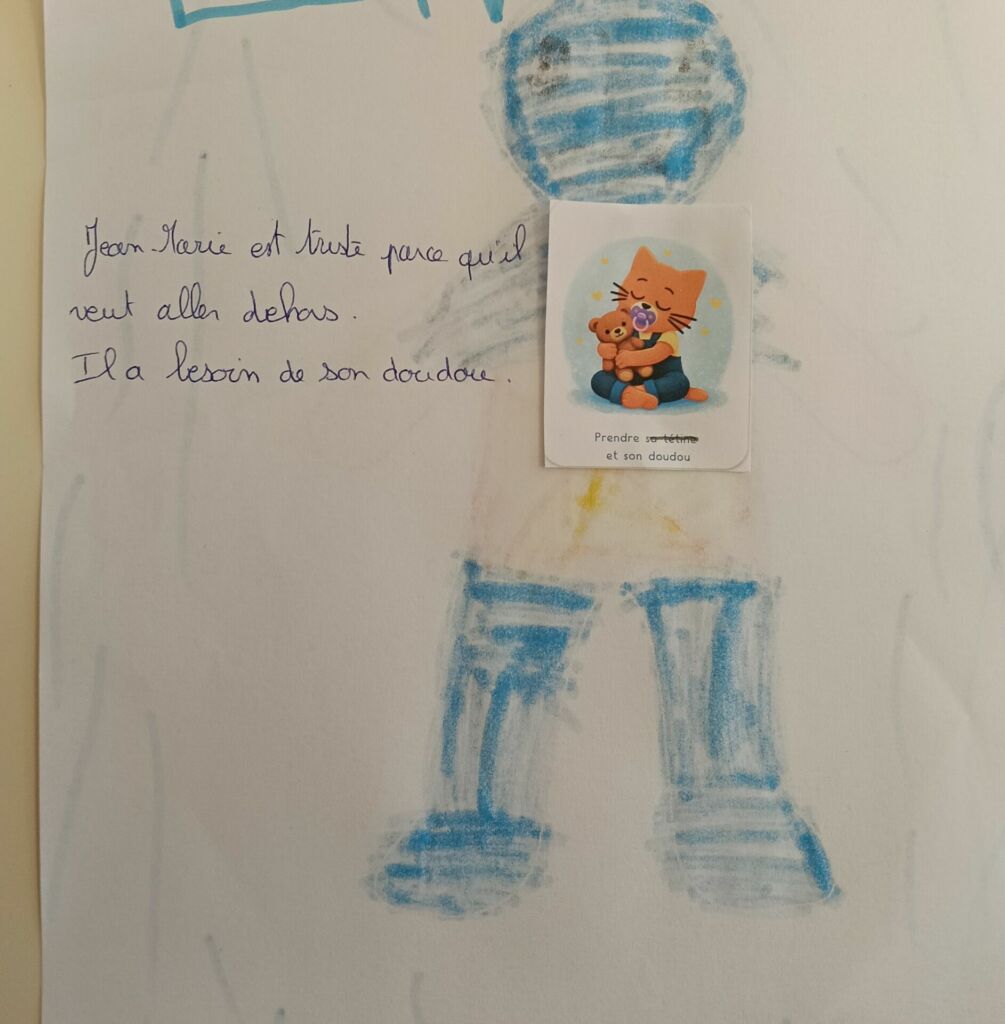 Jean-Marie est triste parce qu'il
veut aller dehors.
Il a besoin de son doudou.
Prendre sa tétine
et son doudou